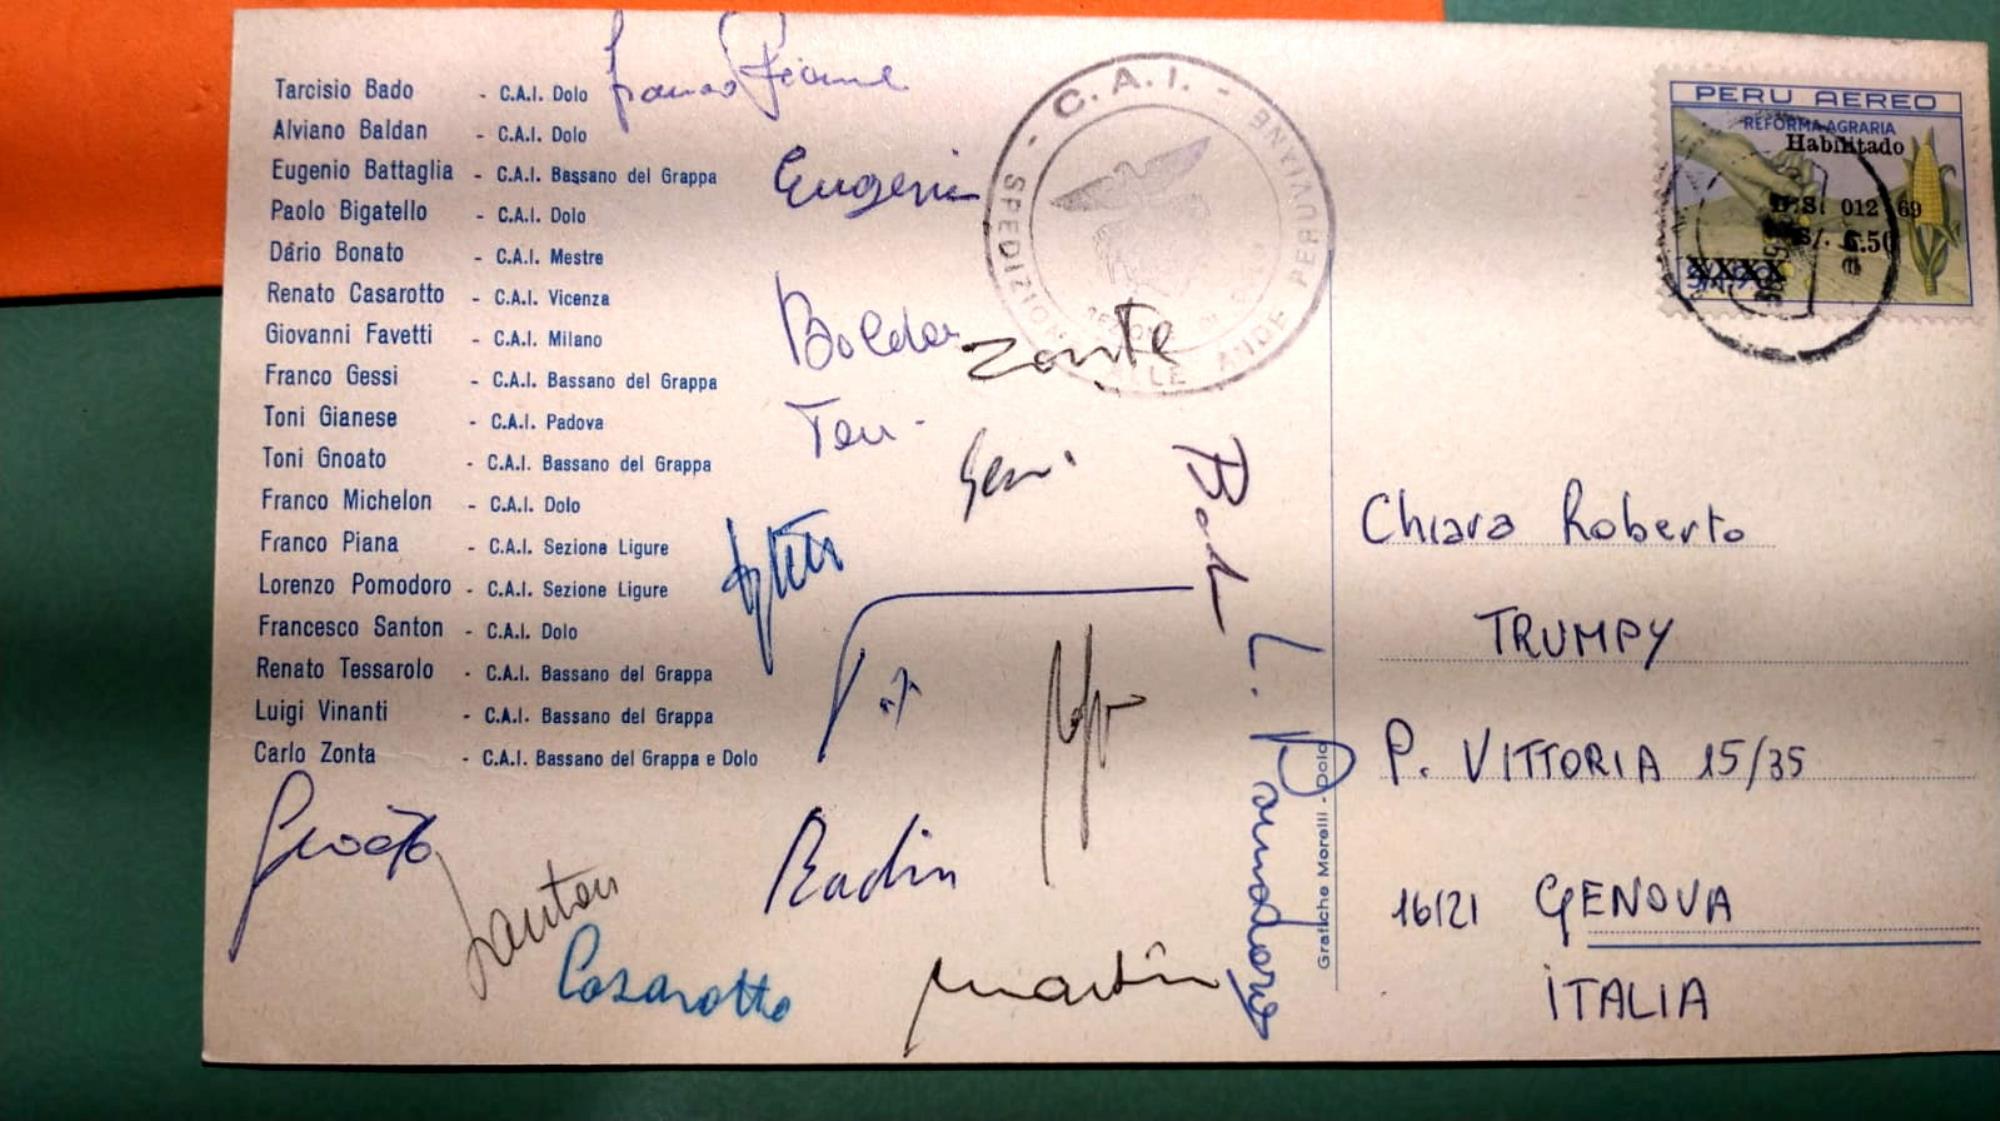 Tarcisio Bado - C.A.I. Dolo
Alviano Baldan - C.A.I. Dolo
Eugenio Battaglia - C.A.I. Bassano del Grappa
Paolo Bigatello - C.A.I. Dolo
Dario Bonato - C.A.I. Mestre
Renato Casarotto - C.A.I. Vicenza
Giovanni Favetti - C.A.I. Milano
Franco Gessi - C.A.I. Bassano del Grappa
Toni Gianese - C.A.I. Padova
Toni Gnoato - C.A.I. Bassano del Grappa
Franco Michelon - C.A.I. Dolo
Franco Piana - C.A.I. Sezione Ligure
Lorenzo Pomodoro - C.A.I. Sezione Ligure
Francesco Santon - C.A.I. Dolo
Renato Tessarolo - C.A.I. Bassano del Grappa
Luigi Vinanti - C.A.I. Bassano del Grappa
Carlo Zonta - C.A.I. Bassano del Grappa e Dolo
Franco Piana
Eugenio
Baldan
Zonta
Gessi
Bado
L. Pomodoro
Gnoato
Santon
Casarotto
- C.A.I. -
SPEDIZIONE ALLE ANDE PERUVIANE
Grafiche Morelli - Dolo
PERU AEREO
REFORMA AGRARIA
Habilitado
D.S. 012 69
S/. 6.50
Chiara Roberto
TRUMPY
P. VITTORIA 15/35
16121 GENOVA
ITALIA